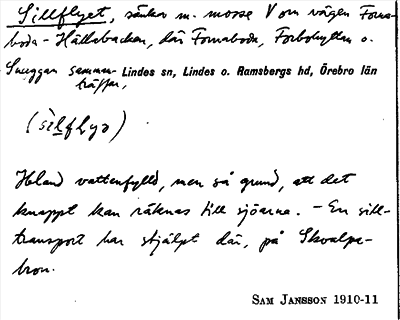 Sillflyet, sänka m. mosse V om vägen Forna-
boda - Hällabacken, där Fornaboda, Forbohyttan o.
Snuggan samman- Lindes sn, Lindes o. Ramsbergs hd, Örebro län
träffar,
(sìlflyə)
Ibland vattenfylld, men så grund, att det
knappt kan räknas till sjöarna. - En sill-
transport har stjälpt där, på Skvalpe-
bron.
SAM JANSSON 1910-11